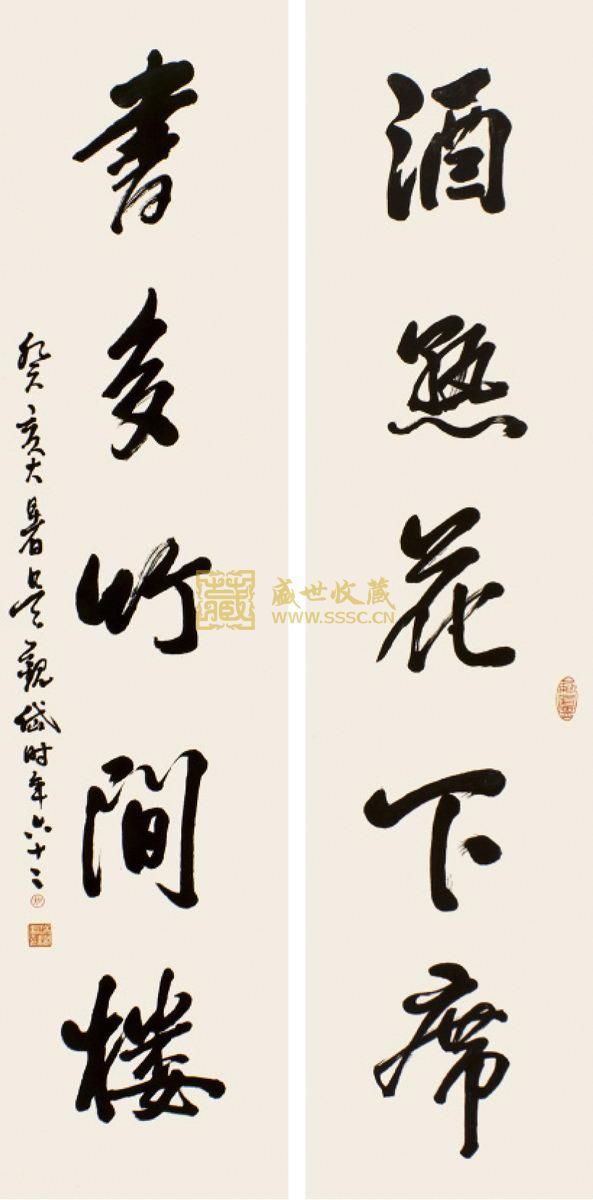 酒熟花下席
書多竹間楼
癸亥大暑吴觀岱时年六十二
藏
盛世收藏
WWW.SSSC.CN